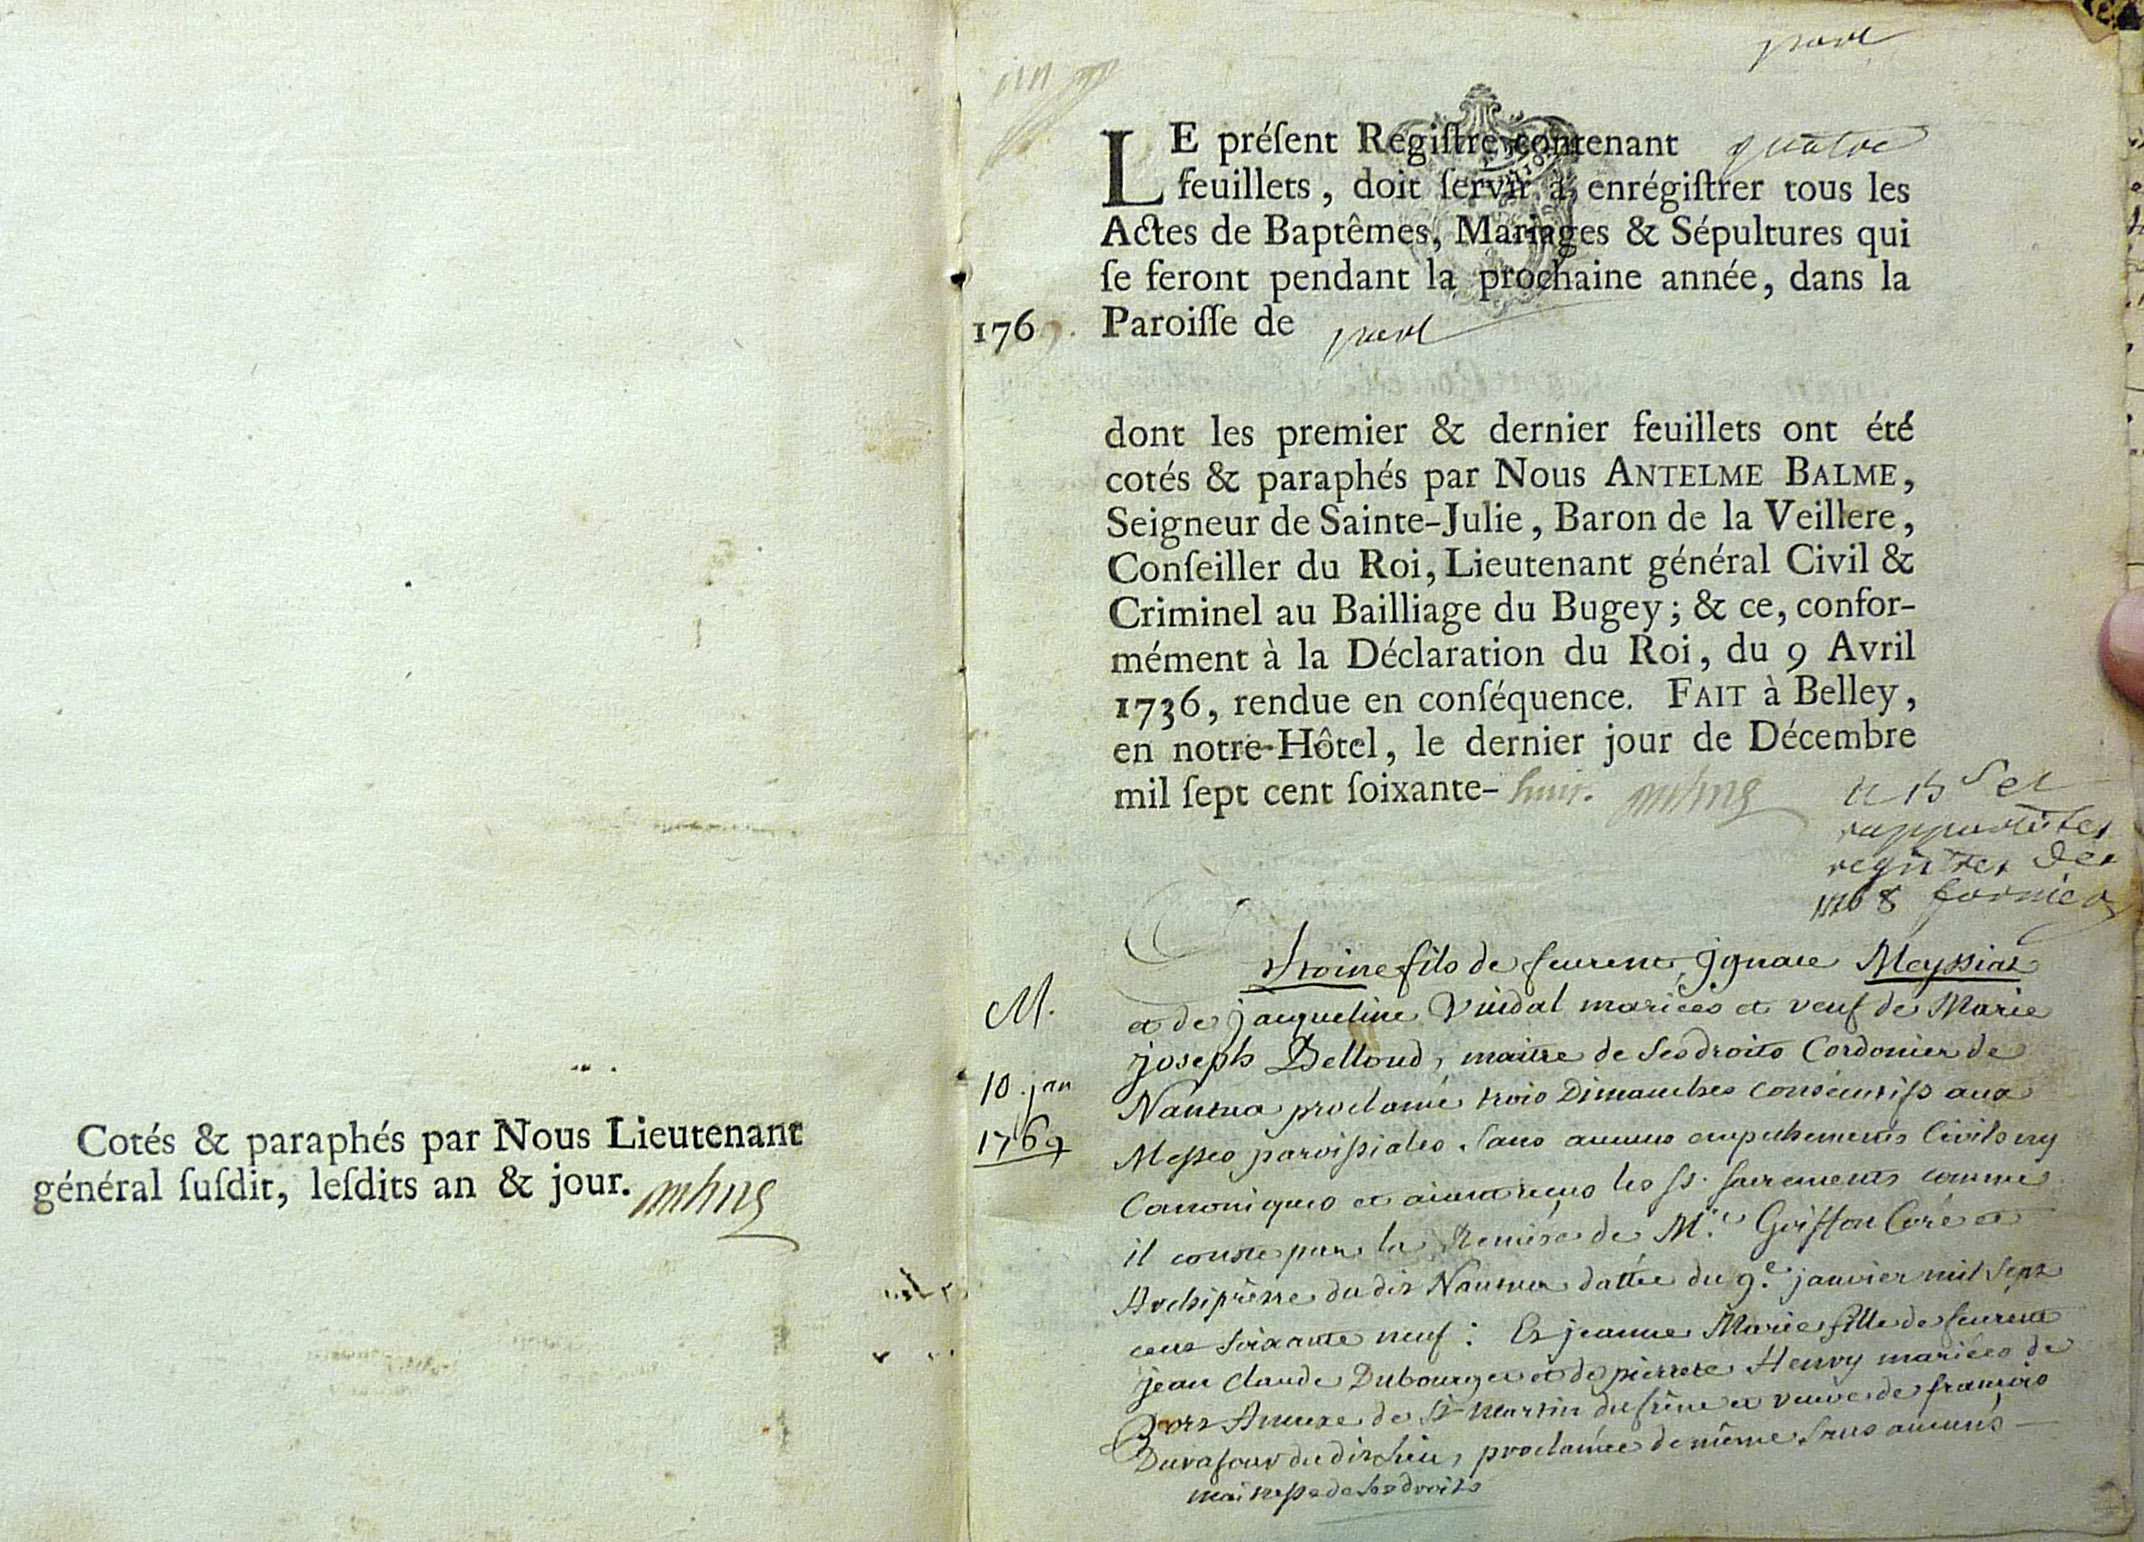 Cotés & paraphés par Nous Lieutenant
général ſuſdit, leſdits an & jour.
port
LE préſent Regiſtre contenant quatre
feuillets, doit ſervir à enrégiſtrer tous les
Actes de Baptêmes, Mariages & Sépultures qui
ſe feront pendant la prochaine année, dans la
1769. Paroiſſe de port
dont les premier & dernier feuillets ont été
cotés & paraphés par Nous ANTELME BALME,
Seigneur de Sainte-Julie, Baron de la Veillere,
Conſeiller du Roi, Lieutenant général Civil &
Criminel au Bailliage du Bugey; & ce, confor-
mément à la Déclaration du Roi, du 9 Avril
1736, rendue en conſéquence. FAIT à Belley,
en notre Hôtel, le dernier jour de Décembre
mil ſept cent ſoixante-huit.
registres des
1768
M.
10 jan
1769
fils de feurent ignace Meyssiat
et de jacqueline Vuidal mariées et veuf de Marie
joseph Delloud, maitre de ses droits Cordonier de
Nantua proclamé trois Dimanches consecutifs aux
Messes paroissiales, sans aucuns empechements Civils ny
Canoniques et aiant reçus les ss. sacrements comme
il conste par la Remise de Mre. Goiffon Curé et
Archiprêtre du dit Nantua dattée du 9e. janvier mil sept
cent soixante neuf: Et jeanne Marie fille de feurent
jean Claude Dubourget et de pierrete Henry mariées de
port Annexe de St martin du frêne et veuve de françois
Duvafour du dit Lieu, proclamée de même sans aucuns
maitresse de ses droits